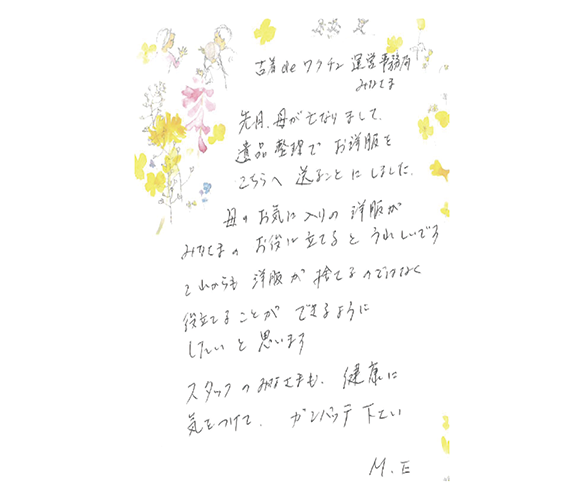 古着deワクチン 運営事務局
みなさま
先月、母が亡なりまして、
遺品整理で お洋服を
こちらへ 送ることにしました。
母のお気に入りの洋服が
みなさまのお役に立てると うれしいです
これからも 洋服が捨てるのではなく
役立てることが できるように
したいと思います
スタッフのみなさまも、健康に
気をつけて、ガンバッテ下さい
M.E